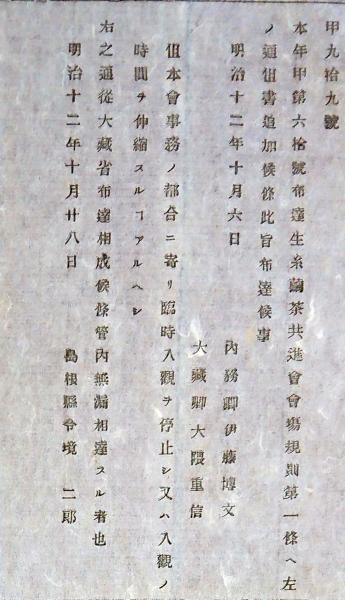 甲九拾九號
本年甲第六拾號布達生糸繭茶共進會會場規則第一條ヘ左
ノ通但書追加候條此旨布達候事
明治十二年十月六日
內務卿伊藤博文
大藏卿大隈重信
但本會事務ノ都合ニ寄リ臨時入觀ヲ停止シ又ハ入觀ノ
時間ヲ伸縮スルヿアルヘシ
右之通從大藏省布達相成候條管內無漏相達スル者也
明治十二年十月廿八日
島根縣令境二郎